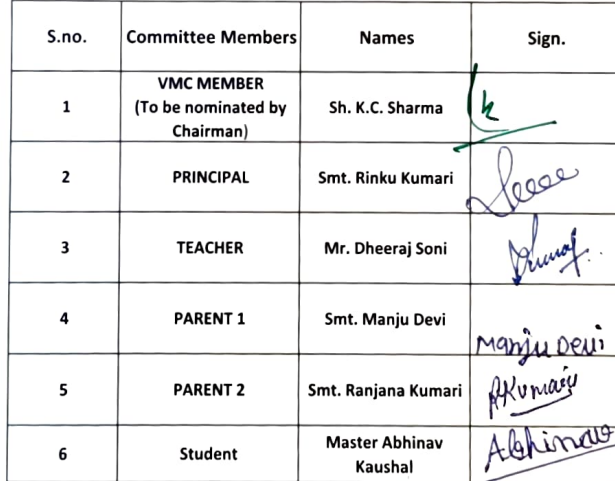 S.no. Committee Members Names Sign.
1 VMC MEMBER
(To be nominated by
Chairman) Sh. K.C. Sharma
2 PRINCIPAL Smt. Rinku Kumari
3 TEACHER Mr. Dheeraj Soni Dhuraj
4 PARENT 1 Smt. Manju Devi Manju Devi
5 PARENT 2 Smt. Ranjana Kumari RKumari
6 Student Master Abhinav
Kaushal Abhinav